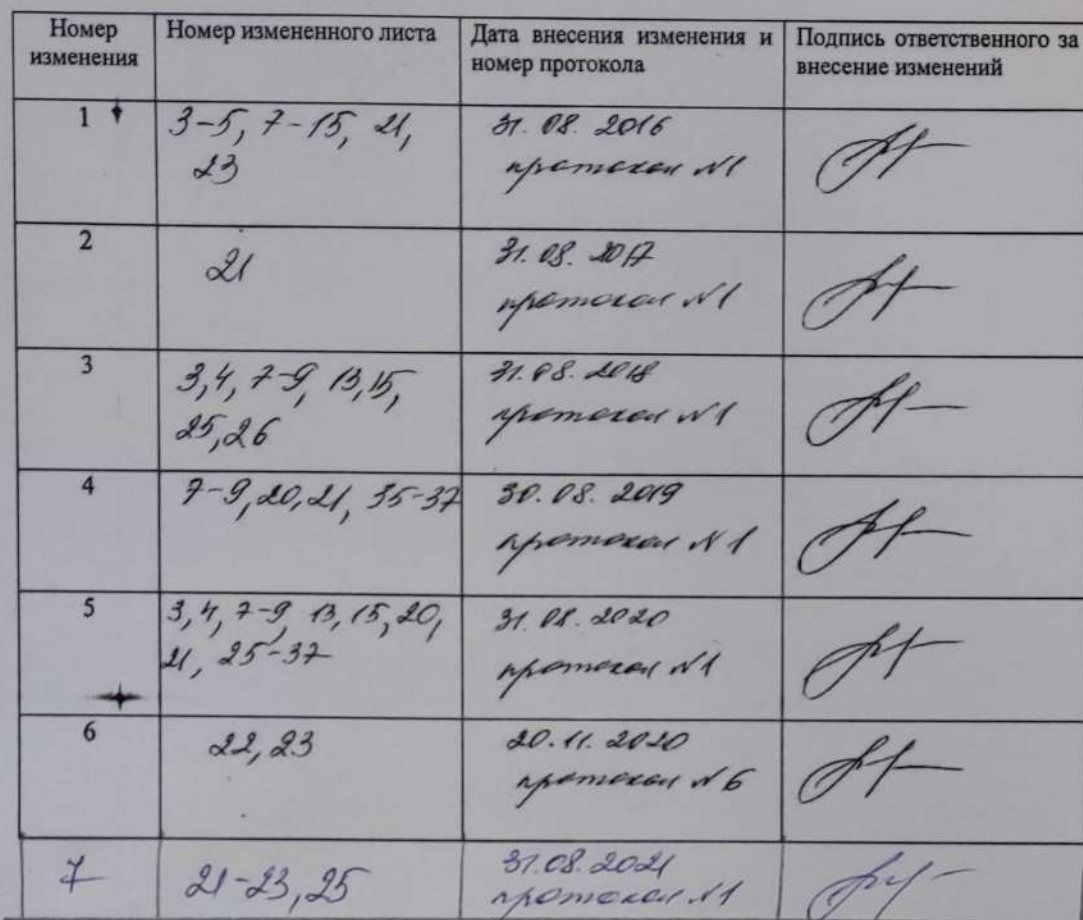 Номер изменения
Номер измененного листа
Дата внесения изменения и номер протокола
Подпись ответственного за внесение изменений
1
3-5, 7-15, 21,
23
31.08.2016
протокол №1
2
21
31.08.2017
протокол №1
3
3,4, 7-9, 13,15,
25,26
31.08.2018
протокол №1
4
7-9,20,21, 35-37
30.08.2019
протокол №1
5
3,4, 7-9, 13, 15, 20,
21, 25-37
31.08.2020
протокол №1
6
22,23
20.11.2020
протокол №6
7
21-23,25
31.08.2021
протокол №1